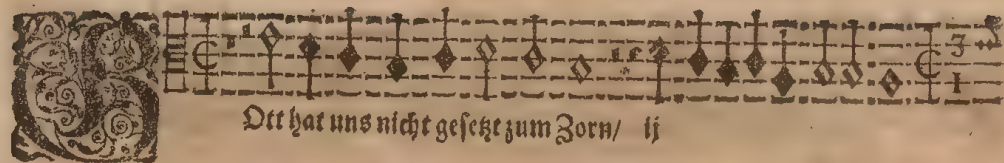 GOtt hat uns nicht gesetzt zum Zorn/ ij